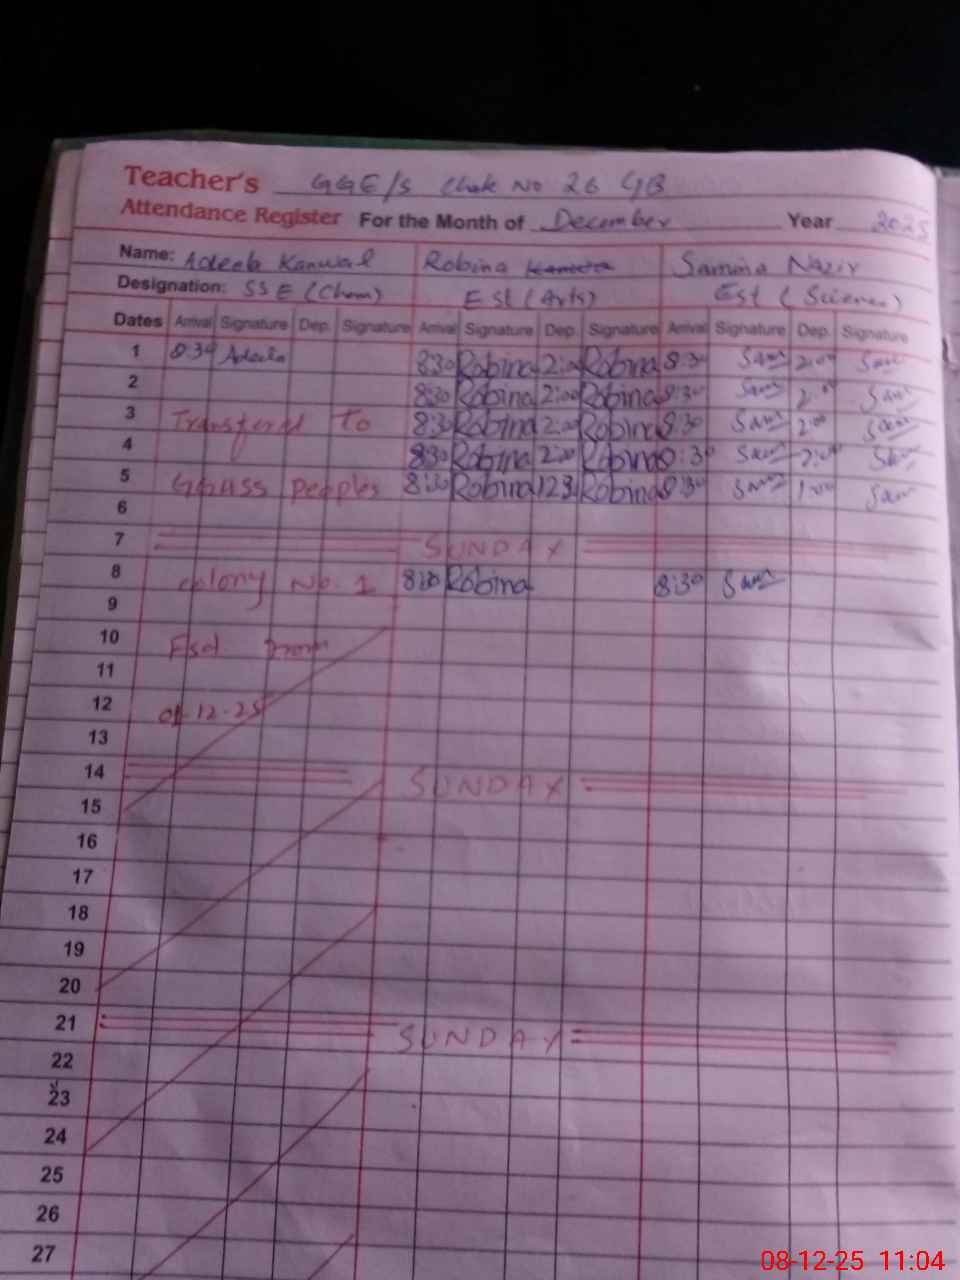 Teacher's GGE/S Chak No 26 GB
Attendance Register For the Month of December Year 2025
Name: Adeela Kanwal Robina Samina Nazir
Designation: SSE (Chem) Est (Arts) Est (Science)
Dates Arrival Signature Dep. Signature Arrival Signature Dep. Signature Arrival Signature Dep. Signature
1 8:30 Adeela 8:30 Robina 2:00 Robina 8:30 Sam 2:00 Sam
2 8:30 Robina 2:00 Robina 8:30 Sam 2:00 Sam
3 Transferd To 8:30 Robina 2:00 Robina 8:30 Sam 2:00 Sam
4 8:30 Robina 2:00 Robina 8:30 Sam 2:00 Sam
5 peoples 8:30 Robina 12:30 Robina 8:30 Sam 1:00 Sam
6
7 SUNDAY
8 colony No. 1 8:30 Robina 8:30 Sam
9
10 Fsd from
11
12 01-12-25
13
14 SUNDAY
15
16
17
18
19
20
21 SUNDAY
22
23
24
25
26
27
08-12-25 11:04